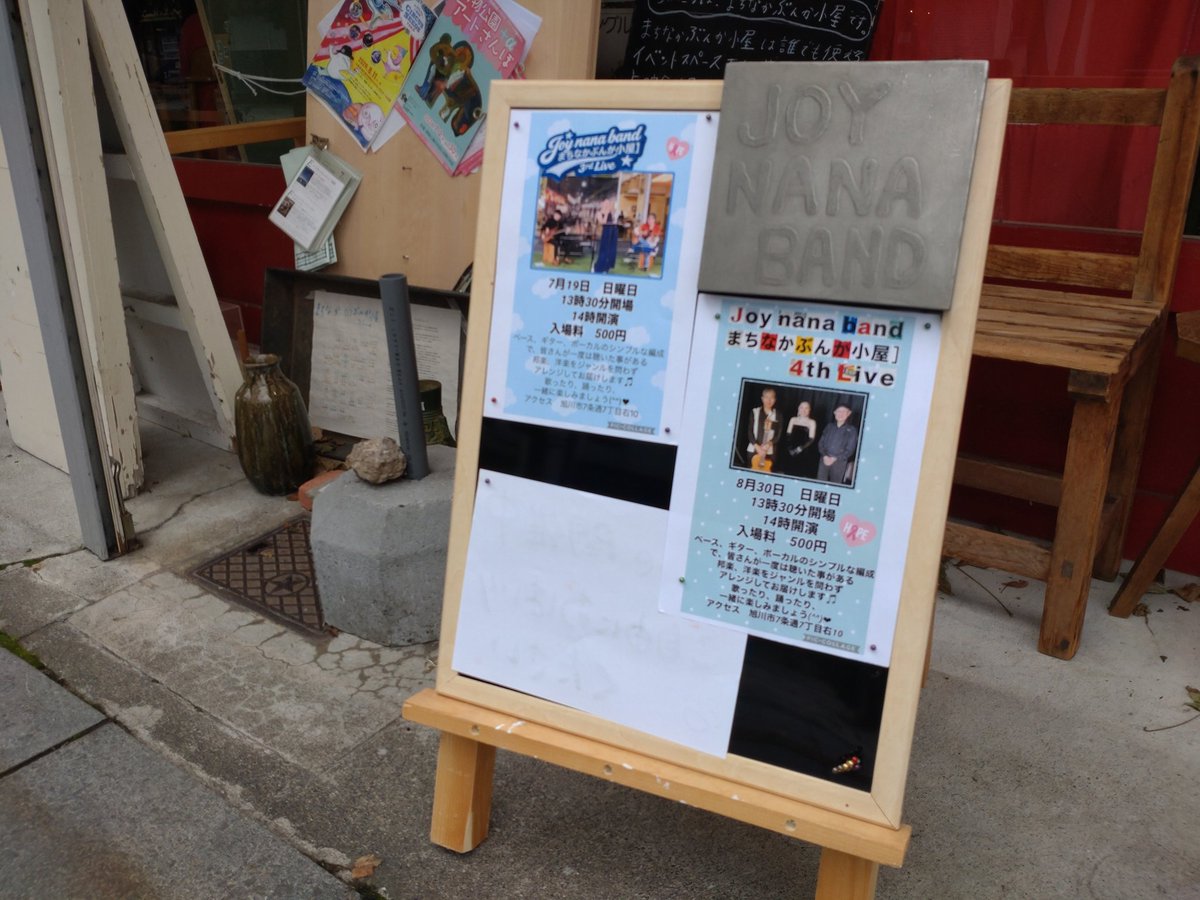 まちなかぶんか小屋です。
まちなかぶんか小屋は誰でも使える
イベントスペース
アートさんぽ
JOY
NANA
BAND
Joy nana band
まちなかぶんか小屋]
3rd Live
7月19日　日曜日
13時30分開場
14時開演
入場料　500円
ベース、ギター、ボーカルのシンプルな編成
で、皆さんが一度は聴いた事がある
邦楽、洋楽をジャンルを問わず
アレンジしてお届けします♫
歌ったり、踊ったり、
一緒に楽しみましょう(^^)❤
アクセス　旭川市7条通7丁目右10
PIC•COLLAGE
Joy nana band
まちなかぶんか小屋]
4th Live
8月30日　日曜日
13時30分開場
14時開演
入場料　500円
HOPE
ベース、ギター、ボーカルのシンプルな編成
で、皆さんが一度は聴いた事がある
邦楽、洋楽をジャンルを問わず
アレンジしてお届けします♫
歌ったり、踊ったり、
一緒に楽しみましょう(^^)❤
アクセス　旭川市7条通7丁目右10
PIC•COLLAGE